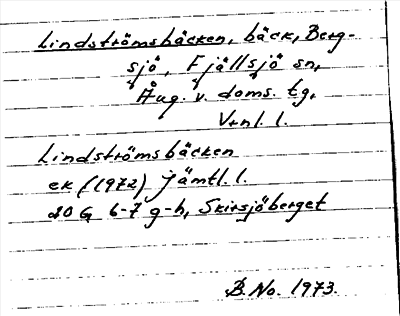 Lindströmsbäcken, bäck, Berg-
sjö, Fjällsjö sn,
Ång. v. doms. tg,
Vrnl. l.
Lindströmsbäcken
ek (1972) Jämtl. l.
20 G 6-7 g-h, Skirsjöberget
B. No. 1973.